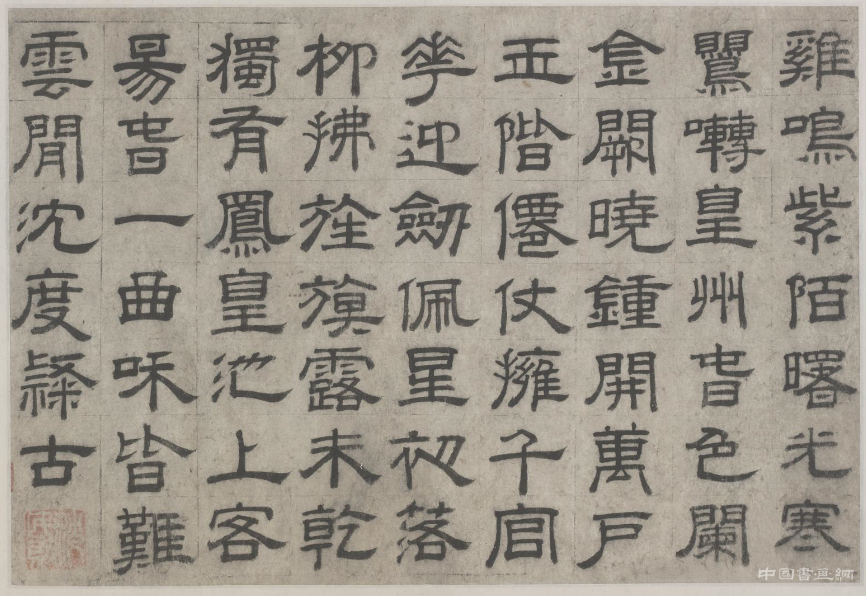 雞鳴紫陌曙光寒
鸎囀皇州旾色闌
金闕曉鍾開萬戶
玉階僊仗擁千官
花迎劒佩星初落
柳拂旌旗露未乾
獨有鳳皇池上客
昜旾一曲咊皆難
雲閒沈度隸古
中國書畫網